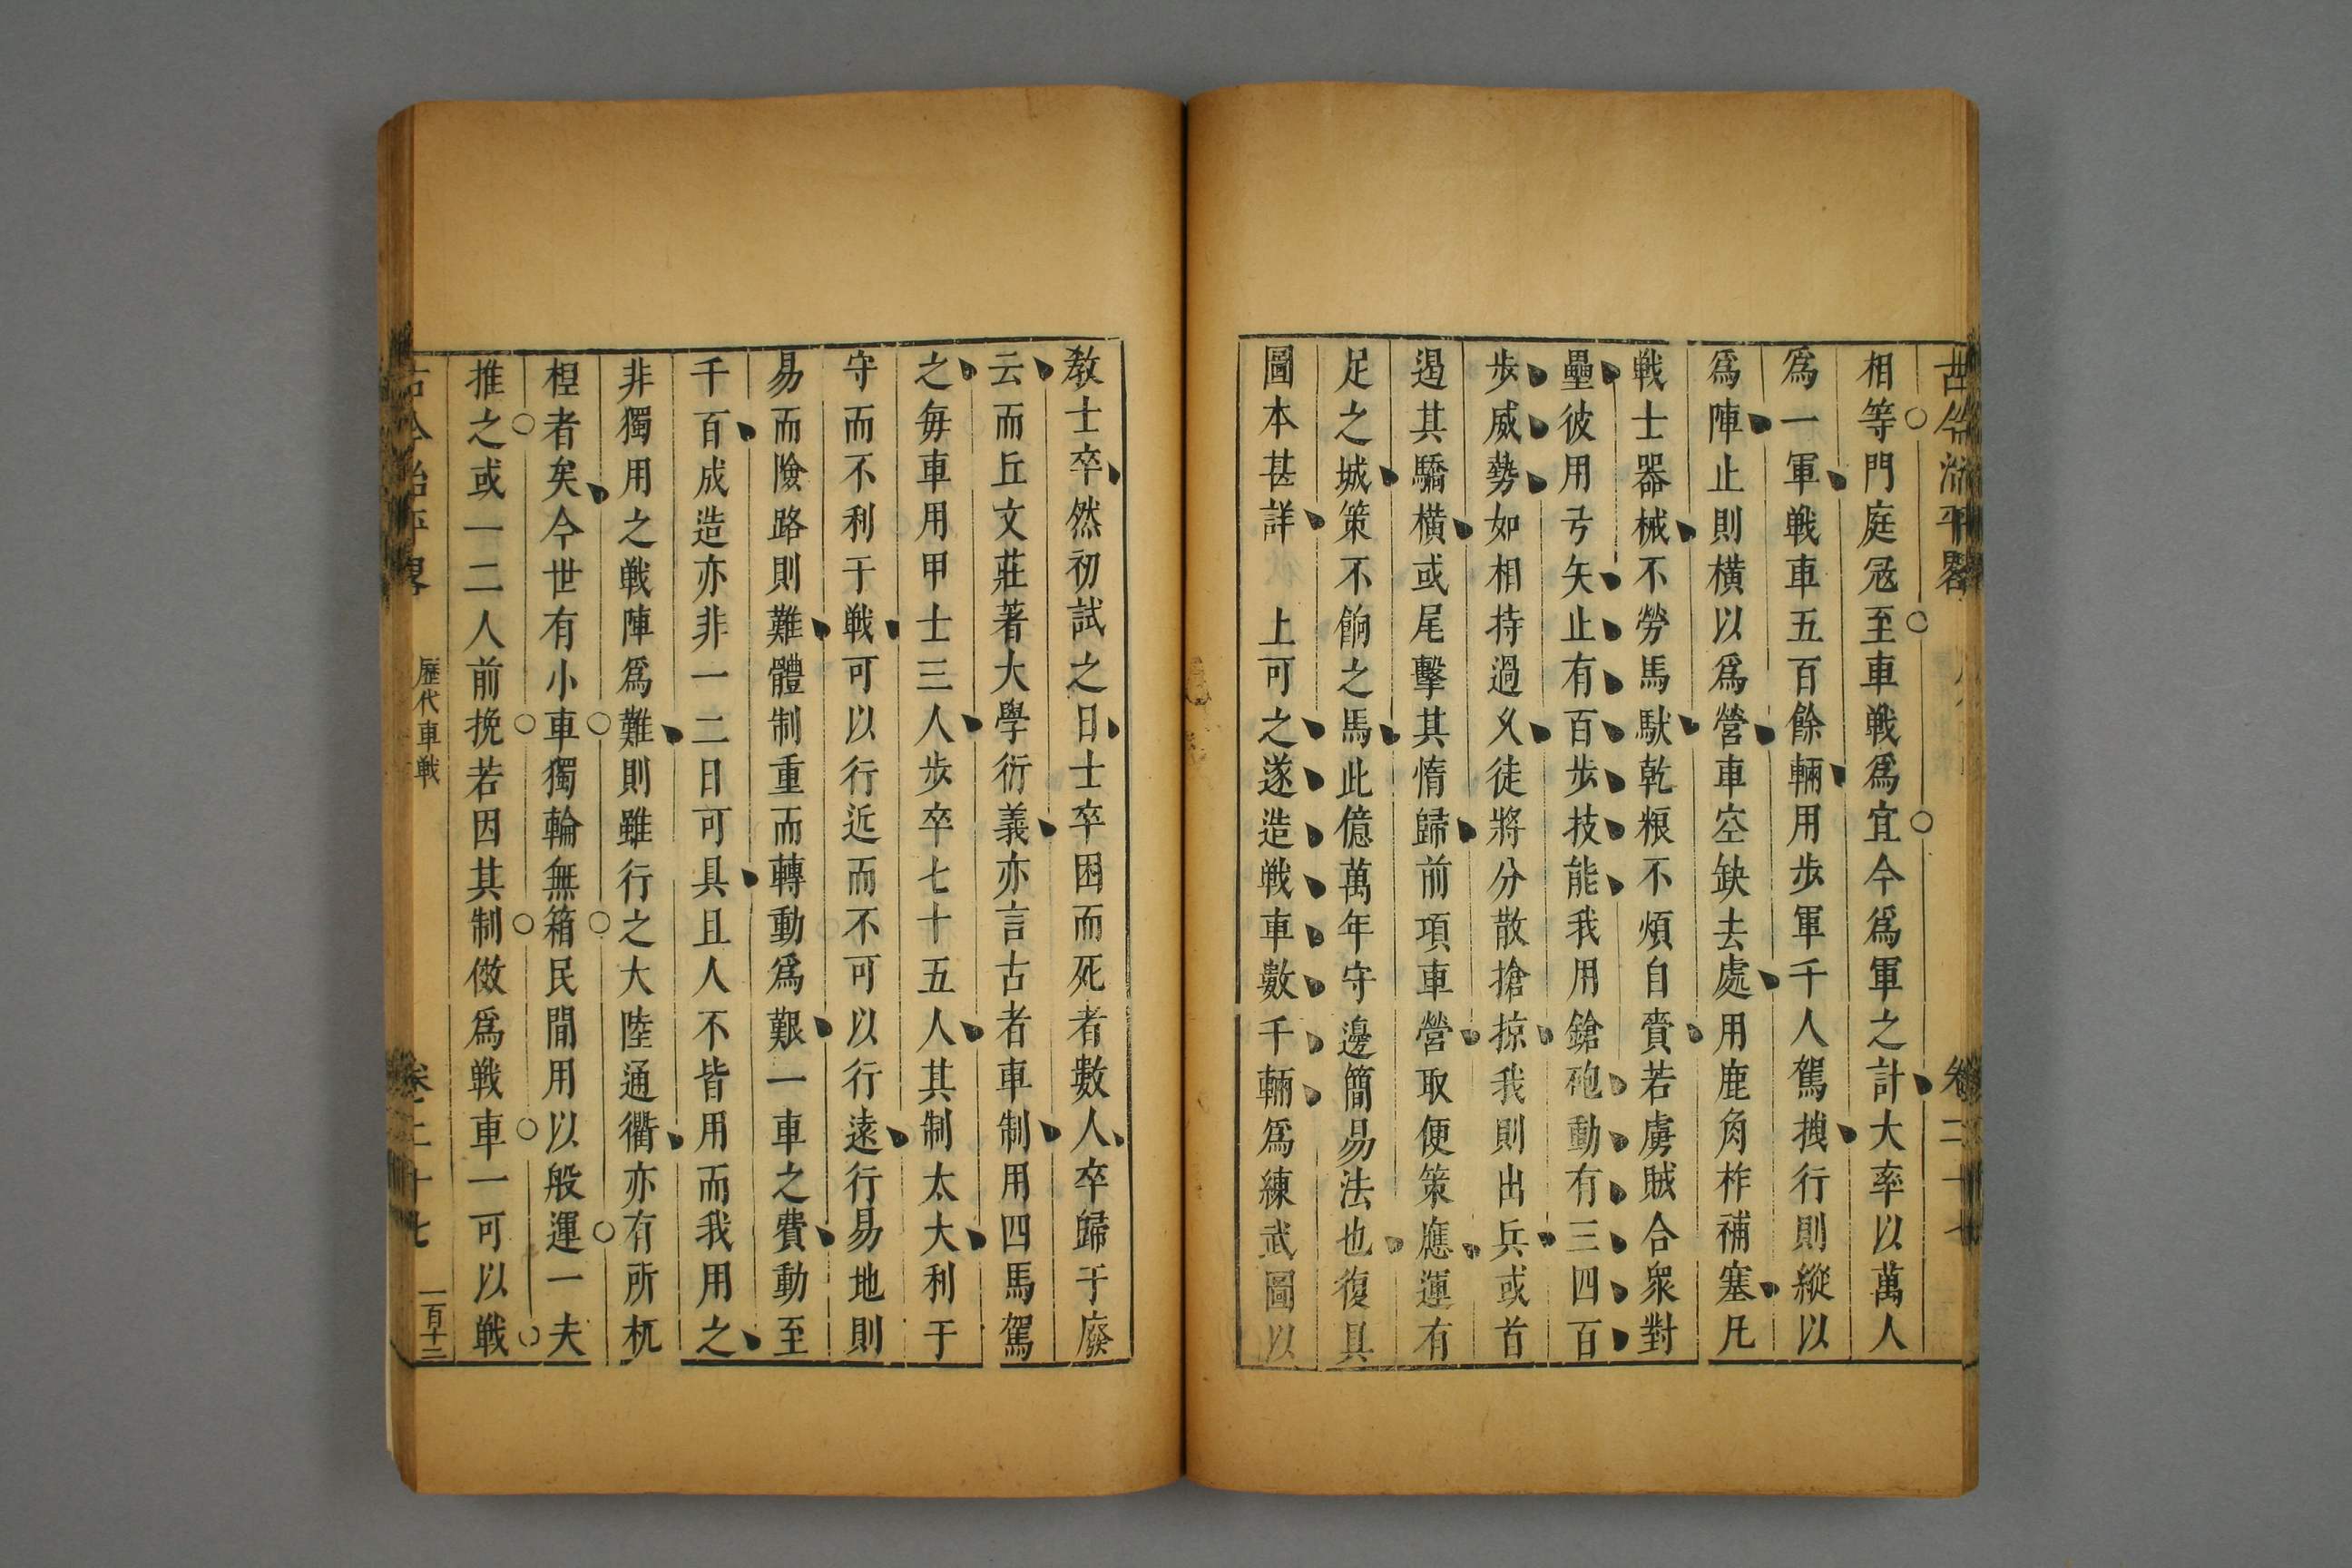 古今治平畧
卷二十七
相等門庭冦至車戦爲宜今爲軍之計大率以萬人
爲一軍戦車五百餘輛用歩軍千人駕拽行則縱以
爲陣止則橫以爲營車空缺去處用鹿角柞補塞凡
戦士器械不勞馬馱乾粮不煩自賫若虜賊合衆對
壘彼用弓矢止有百歩技能我用鎗砲動有三四百
歩威勢如相持過久徒將分散搶掠我則出兵或首
遏其驕橫或尾擊其惰歸前項車營取便策應運有
足之城策不餉之馬此億萬年守邊簡易法也復具
圖本甚詳　上可之遂造戦車數千輛爲練武圖以
教士卒然初試之日士卒困而死者數人卒歸于廢
云而丘文莊著大學衍義亦言古者車制用四馬駕
之每車用甲士三人歩卒七十五人其制太大利于
守而不利于戦可以行近而不可以行遠行易地則
易而險路則難體制重而轉動爲艱一車之費動至
千百成造亦非一二日可具且人不皆用而我用之
非獨用之戦陣爲難則雖行之大陸通衢亦有所杌
桯者矣今世有小車獨輪無箱民間用以般運一夫
推之或一二人前挽若因其制倣爲戦車一可以戦
古今治平畧
歷代車戦
卷二十七
一百十二